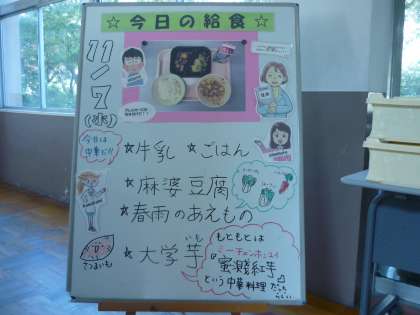 ☆今日の給食☆
11/7
(水)
今日は
中華だ!!
☆牛乳 ☆ごはん
☆麻婆豆腐
☆春雨のあえもの
☆大学芋
いも
さつまいも
もともとは
『蜜濺紅芋』
という中華料理
だった
らしい